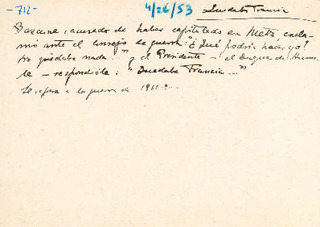 -712-
4/26/53 Quedaba Francia
Bazaine, acusado de haber capitulado en Metz, excla-
mó ante el consejo de guerra: "¿Qué podía hacer yo?
No quedaba nada" y el Presidente — el duque de Auma-
le — respondióle: "Quedaba Francia..."
Se refiere a la guerra de